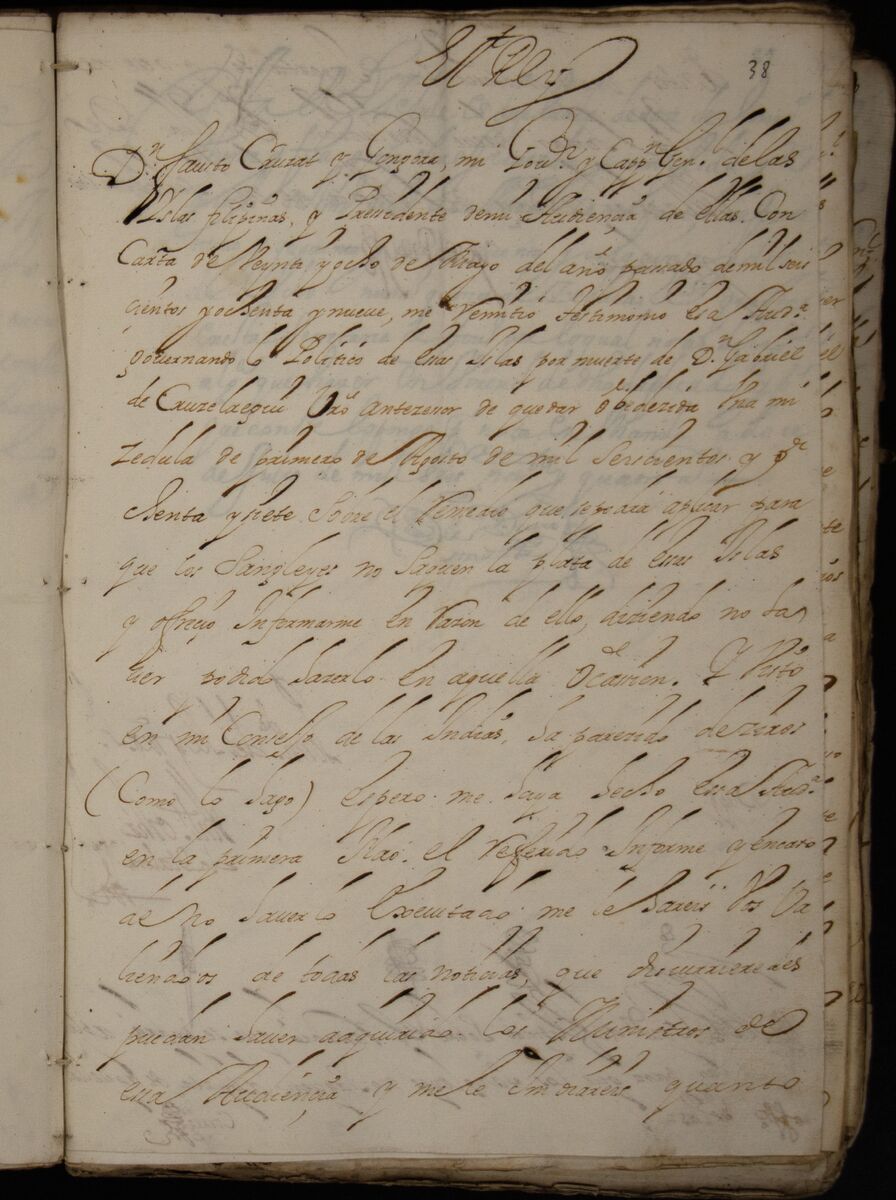 El Rey
38
Dn. fausto Cruzat y Gongora, mi Govor. y Cappn. Genl. de las
Islas filipinas, y Presidente de mi Audiençia de ellas. Con
Carta de Veynte y ocho de Mayo del año passado de mil seis
cientos y ochenta y nueve, me remitió testimonio essa Auda.
governando lo Politico de essas Islas por muerte de Dn. Gabriel
de Curzelaegui Vro. antezesor de quedar obedezida Una mi
zedula de primero de Agosto de mil seiscientos y o
chenta y siete sobre el remedio que se podrá aplicar para
que los Sangleyes no saquen la plata de essas Islas
y ofreçio Informarme en razon de ello, diziendo no ha
ver podido hazerlo en aquella Ocassion. Y Visto
en mi Consejo de las Indias, ha parezido deziros
(Como lo hago) espero me haya hecho essa Auda.
en la primera Nao. el referido Informe y en caso
de no haverlo executado me le hareis Vos Va
liendoos de todas las noticias, que discurrieredes
puedan haver adquirido los Ministros de
essa Audiençia y me le embiareis quanto